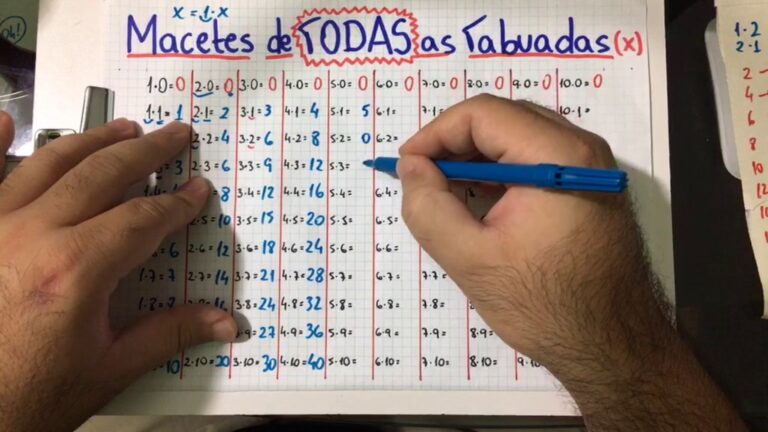 Oh!
x = 1·x
Macetes de TODAS as Tabuadas (x)
1·0=0 2·0=0 3·0=0 4·0=0 5·0=0 6·0=0 7·0=0 8·0=0 9·0=0 10·0=0
1·1=1 2·1=2 3·1=3 4·1=4 5·1= 5 6·1= 7·1 10·1=
2·2=4 3·2=6 4·2=8 5·2= 0 6·2=
3 2·3=6 3·3=9 4·3=12 5·3=
1·4 8 3·4=12 4·4=16 5·4= 6·4=
2·5=10 3·5=15 4·5=20 5·5= 6·5=
6 2·6=12 3·6=18 4·6=24 5·6= 6·6=
1·7=7 2·7=14 3·7=21 4·7=28 5·7= 6·7= 7·7=
1·8= 3·8=24 4·8=32 5·8= 6·8= 7·8=
·9=27 4·9=36 5·9= 6·9= 7·9= 8·9=
10 2·10=20 3·10=30 4·10=40 5·10= 6·10= 7·10= 8·10= 9·10=
1·2
2·1
2
4
6
8
10
12